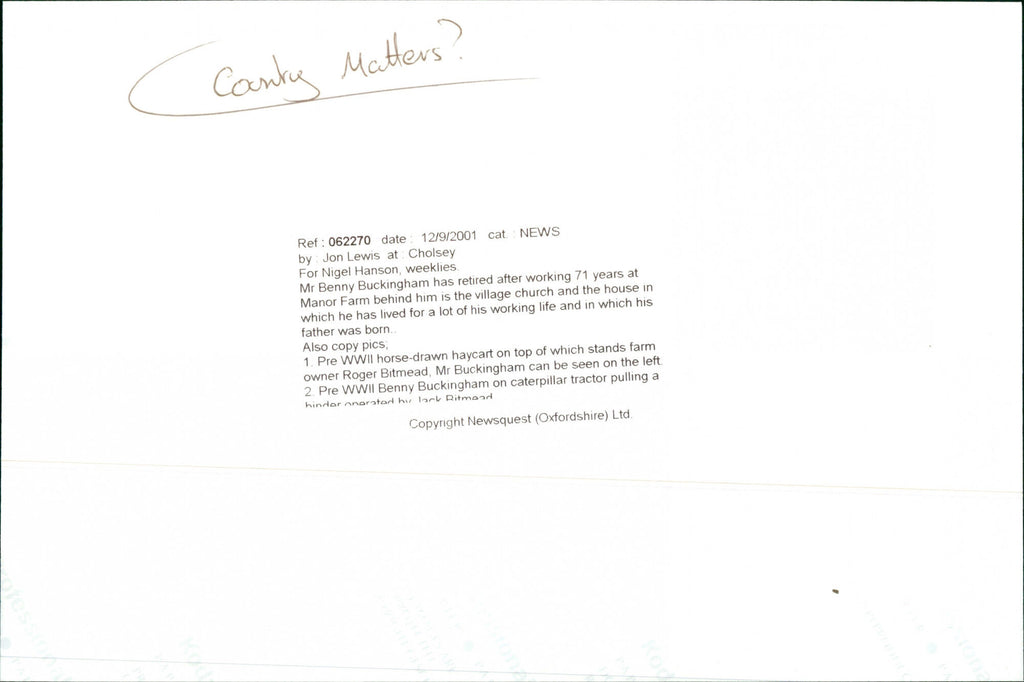 Country Matters?
Ref : 062270 date : 12/9/2001 cat. : NEWS
by : Jon Lewis at : Cholsey
For Nigel Hanson, weeklies.
Mr Benny Buckingham has retired after working 71 years at
Manor Farm behind him is the village church and the house in
which he has lived for a lot of his working life and in which his
father was born..
Also copy pics;
1. Pre WWII horse-drawn haycart on top of which stands farm
owner Roger Bitmead, Mr Buckingham can be seen on the left.
2. Pre WWII Benny Buckingham on caterpillar tractor pulling a
binder operated by Jack Bitmead
Copyright Newsquest (Oxfordshire) Ltd.